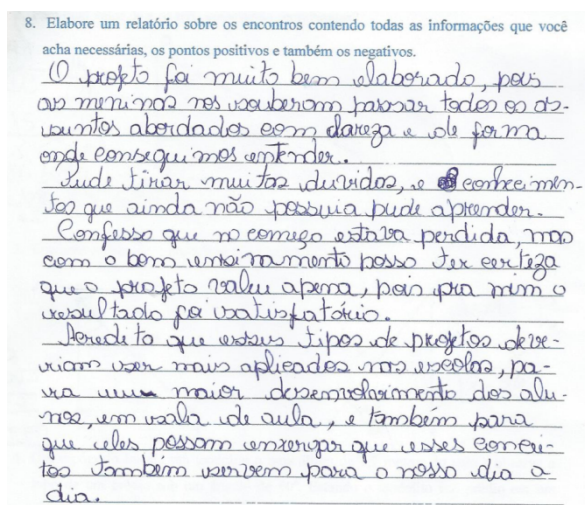 8. Elabore um relatório sobre os encontros contendo todas as informações que você
acha necessárias, os pontos positivos e também os negativos.
O projeto foi muito bem elaborado, pois
as meninas nos souberam passar todos os as-
suntos abordados com clareza e de forma
onde conseguimos entender.
Pude tirar muitas duvidas, e conhecimen-
tos que ainda não possuia pude aprender.
Confesso que no começo estava perdida, mas
com o bom ensinamento posso ter certeza
que o projeto valeu apena, pois pra mim o
resultado foi satisfatório.
Acredito que esses tipos de projetos deve-
riam ser mais aplicados nas escolas, pa-
ra um maior desenvolvimento dos alu-
nos, em sala de aula, e também para
que eles possam enxergar que esses concei-
tos também servem para o nosso dia a
dia.